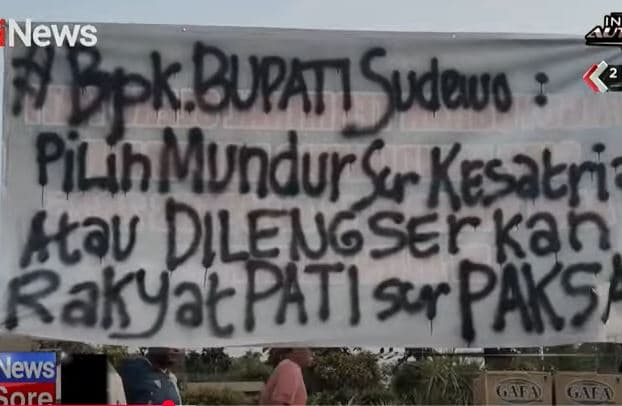 iNews
# Bpk. BUPATI Sudewo :
PiLih Mundur Scr Kesatria
Atau DILENGSERkan
Rakyat PATI scr PAKSA
News
Sore
GAFA GAFA
2